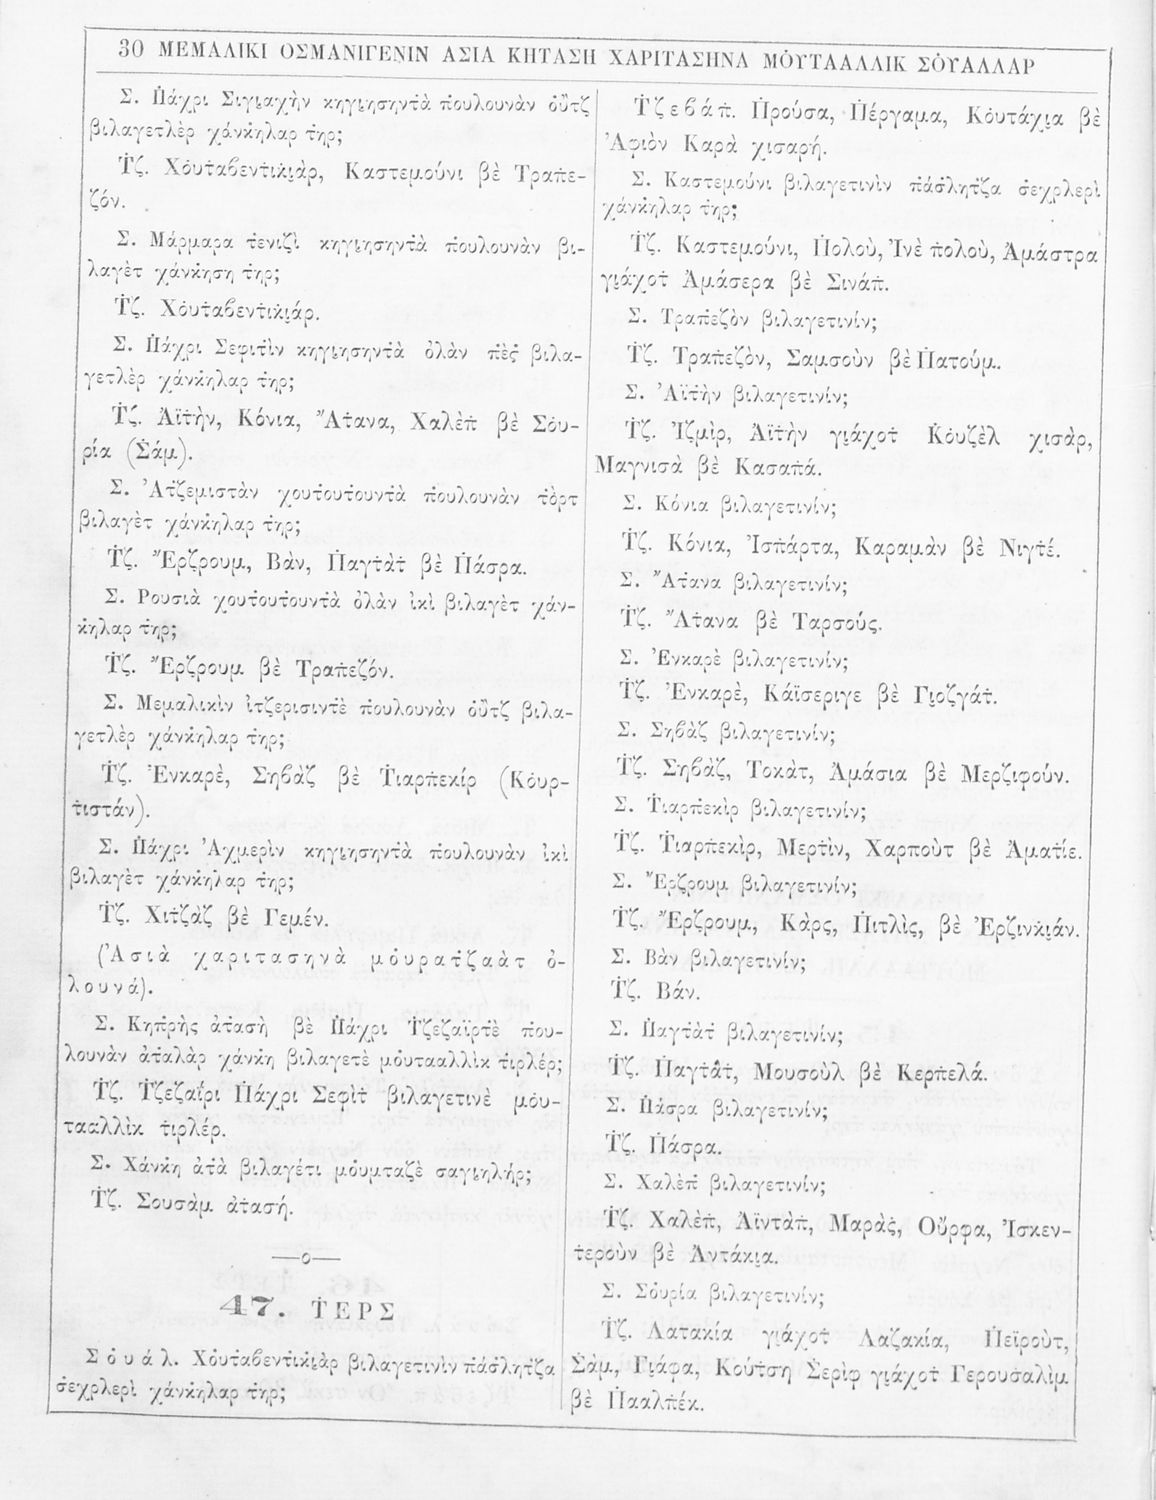 30 ΜΕΜΑΛΙΚΙ ΟΣΜΑΝΙΓΕΝΙΝ ΑΣΙΑ ΚΗΤΑΣΗ ΧΑΡΙΤΑΣΗΝΑ ΜΟΥΤΑΑΛΛΙΚ ΣΟΥΑΛΛΑΡ
Σ. Π̇άχρι Σιγι̮αχὴν κηγι̮ησηντὰ π̇ουλουνὰν ὀὒτζ
βιλαγετλὲρ χάνκ̇ηλαρ τ̇ηρ;
Τ̇ζ. Χὀυτ̇αβεντικι̮ὰρ, Καστεμούνι βὲ Τραπε-
ζόν.
Σ. Μάρμαρα τ̇ενιζὶ κηγι̮ησηντ̇ὰ π̇ουλουνὰν βι-
λαγὲτ χάνκ̇ηση τ̇ηρ;
Τ̇ζ. Χὀυτ̇αβεντικι̮άρ.
Σ. Π̇άχρι Σεφιτὶν κηγι̮ησηντ̇ὰ ὀλὰν π̇ὲς̇ βιλα-
γετλὲρ χάνκ̇ηλαρ τ̇ηρ;
Τ̇ζ. Ἀϊτ̇ὴν, Κόνια, Ἄτ̇ανα, Χαλὲπ̇ βὲ Σὀυ-
ρία (Σ̇άμ).
Σ. Ἀτζεμιστὰν χουτ̇ουτουντ̇ὰ π̇ουλουνὰν τ̇ὀρτ
βιλαγὲτ χάνκ̇ηλαρ τ̇ηρ;
Τ̇ζ. Ἔρζρουμ, Βὰν, Π̇αγτ̇ὰτ̇ βὲ Π̇άσρα.
Σ. Ρουσιὰ χουτ̇ουτουντ̇ὰ ὀλὰν ἰκὶ βιλαγὲτ χάν-
κ̇ηλαρ τ̇ηρ;
Τ̇ζ. Ἔρζρουμ βὲ Τραπεζόν.
Σ. Μεμαλικὶν ἰτζερισιντ̇ὲ π̇ουλουνὰν ὀὒτζ βιλα-
γετλὲρ χάνκ̇ηλαρ τ̇ηρ;
Τ̇ζ. Ἐνκαρὲ, Σηβὰζ βὲ Τ̇ιαρπ̇εκίρ (Κὀυρ-
τ̇ιστάν).
Σ. Π̇άχρι Ἀχμερὶν κηγι̮ησηντ̇ὰ π̇ουλουνὰν ἰκὶ
βιλαγὲτ χάνκ̇ηλαρ τ̇ηρ;
Τ̇ζ. Χιτζὰζ βὲ Γεμέν.
(Ἀσιὰ χαριτασηνὰ μὀυρατζαὰτ ὀ-
λουνά).
Σ. Κηπ̇ρὴς ἀτ̇ασὴ βὲ Π̇άχρι Τ̇ζεζαϊρτ̇ὲ π̇ου-
λουνὰν ἀτ̇αλὰρ χάνκ̇η βιλαγετὲ μὀυτααλλὶκ τ̇ιρλέρ;
Τ̇ζ. Τ̇ζεζαΐρι Π̇άχρι Σεφὶτ̇ βιλαγετινὲ μὀυ-
τααλλὶκ τ̇ιρλέρ.
Σ. Χάνκ̇η ἀτ̇ὰ βιλαγέτι μὀυμταζὲ σαγι̮ηλήρ;
Τ̇ζ. Σουσὰμ ἀτ̇ασή.
—ο—
47. Τ̇ΕΡΣ
Σὀυάλ. Χὀυτ̇αβεντικι̮ὰρ βιλαγετινὶν π̇άσ̇λητζα
σ̇εχρλερὶ χάνκ̇ηλαρ τ̇ηρ;
Τ̇ζεβάπ̇. Π̇ρούσα, Π̇έργαμα, Κὀυτάχι̮α βὲ
Ἀφιὸν Καρὰ χισαρή.
Σ. Καστεμούνι βιλαγετινὶν π̇άσ̇λητζα σ̇εχρλερὶ
χάνκ̇ηλαρ τ̇ηρ;
Τ̇ζ. Καστεμούνι, Π̇ολοὺ, Ἰνὲ π̇ολοὺ, Ἀμάστρα
γι̮άχοτ̇ Ἀμάσερα βὲ Σινάπ̇.
Σ. Τραπ̇εζὸν βιλαγετινίν;
Τ̇ζ. Τραπ̇εζὸν, Σαμσοὺν βὲ Π̇ατούμ.
Σ. Ἀϊτ̇ὴν βιλαγετινίν;
Τ̇ζ. Ἰζμὶρ, Ἀϊτ̇ὴν γι̮άχοτ̇ Κ̇ὀυζὲλ χισὰρ,
Μαγνισὰ βὲ Κασαπ̇ά.
Σ. Κόνια βιλαγετινίν;
Τ̇ζ. Κόνια, Ἰσπ̇άρτα, Καραμὰν βὲ Νιγτ̇έ.
Σ. Ἄτ̇ανα βιλαγετινίν;
Τ̇ζ. Ἄτ̇ανα βὲ Ταρσούς.
Σ. Ἐνκαρὲ βιλαγετινίν;
Τ̇ζ. Ἐνκαρὲ, Κάϊσεριγε βὲ Γι̮οζγάτ.
Σ. Σηβὰζ βιλαγετινίν;
Τ̇ζ. Σηβὰζ, Τοκὰτ, Ἀμάσια βὲ Μερζιφούν.
Σ. Τ̇ιαρπ̇εκὶρ βιλαγετινίν;
Τ̇ζ. Τ̇ιαρπ̇εκὶρ, Μερτ̇ὶν, Χαρποὺτ βὲ Ἀματίε.
Σ. Ἔρζρουμ βιλαγετινίν;
Τ̇ζ. Ἔρζρουμ, Κὰρς, Π̇ιτλὶς, βὲ Ἐρζινκι̮άν.
Σ. Βὰν βιλαγετινίν;
Τ̇ζ. Βάν.
Σ. Π̇αγτ̇ὰτ̇ βιλαγετινίν;
Τ̇ζ. Π̇αγτ̇ὰτ̇, Μουσοὺλ βὲ Κερπ̇ελά.
Σ. Π̇άσρα βιλαγετινίν;
Τ̇ζ. Π̇άσρα.
Σ. Χαλὲπ̇ βιλαγετινίν;
Τ̇ζ. Χαλὲπ̇, Ἀϊντὰπ̇, Μαρὰς̇, Οὔρφα, Ἰσκεν-
τ̇εροὺν βὲ Ἀντάκι̮α.
Σ. Σὀυρία βιλαγετινίν;
Τ̇ζ. Λατακία γι̮άχοτ̇ Λαζακία, Π̇εϊροὺτ,
Σ̇ὰμ, Γι̮άφα, Κούτση Σ̇ερὶφ γι̮άχοτ̇ Γερουσαλὶμ
βὲ Π̇ααλπέκ.